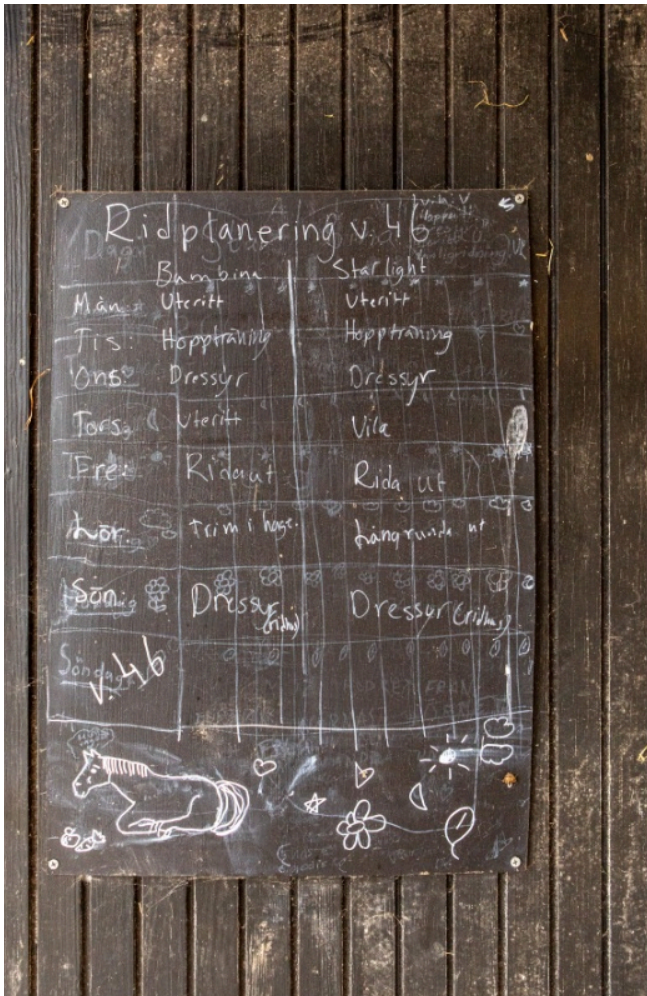 Ridplanering v. 46
Bambina Starlight
Mån: Uteritt Uteritt
Tis: Hoppträning Hoppträning
Ons: Dressyr Dressyr
Tors: Uteritt Vila
Fre: Rida ut Rida ut
Lör. Trim i hage. Långrunda ut
Sön. Dressyr (ridhus) Dressyr (ridhus)
Söndag
v. 46